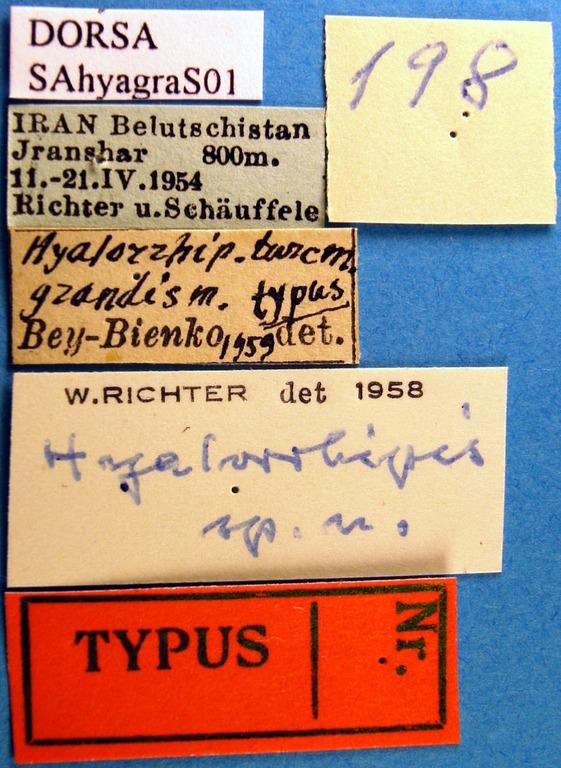 DORSA
SAhyagraS01
198
IRAN Belutschistan
Jranshar 800m.
11.-21.IV.1954
Richter u.Schäuffele
Hyalorrhip. turcm.
grandis m. typus
Bey-Bienko 1959 det.
W.RICHTER det 1958
Hyalorrhipis
sp. n.
TYPUS Nr.